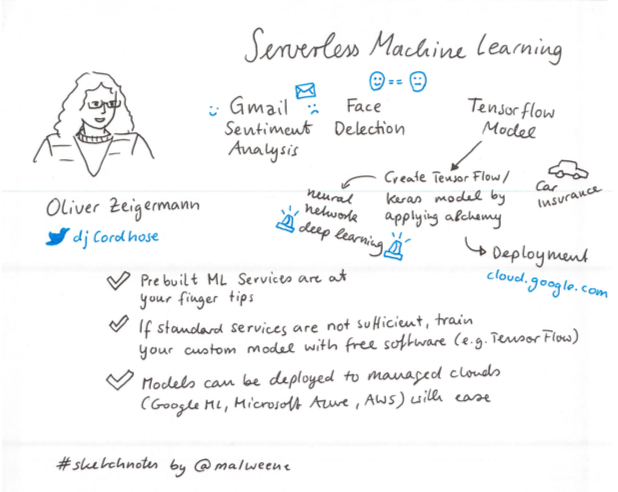 Serverless Machine Learning
Gmail
Sentiment
Analysis
Face
Detection
==
Tensorflow
Model
Create Tensor Flow/
Keras model by
applying alchemy
neural
network
deep learning
Car
insurance
Deployment
cloud.google.com
Oliver Zeigermann
djCordhose
Prebuilt ML Services are at
your finger tips
If standard services are not sufficient, train
your custom model with free software (e.g. TensorFlow)
Models can be deployed to managed clouds
(Google ML, Microsoft Azure, AWS) with ease
#sketchnotes by @malweene